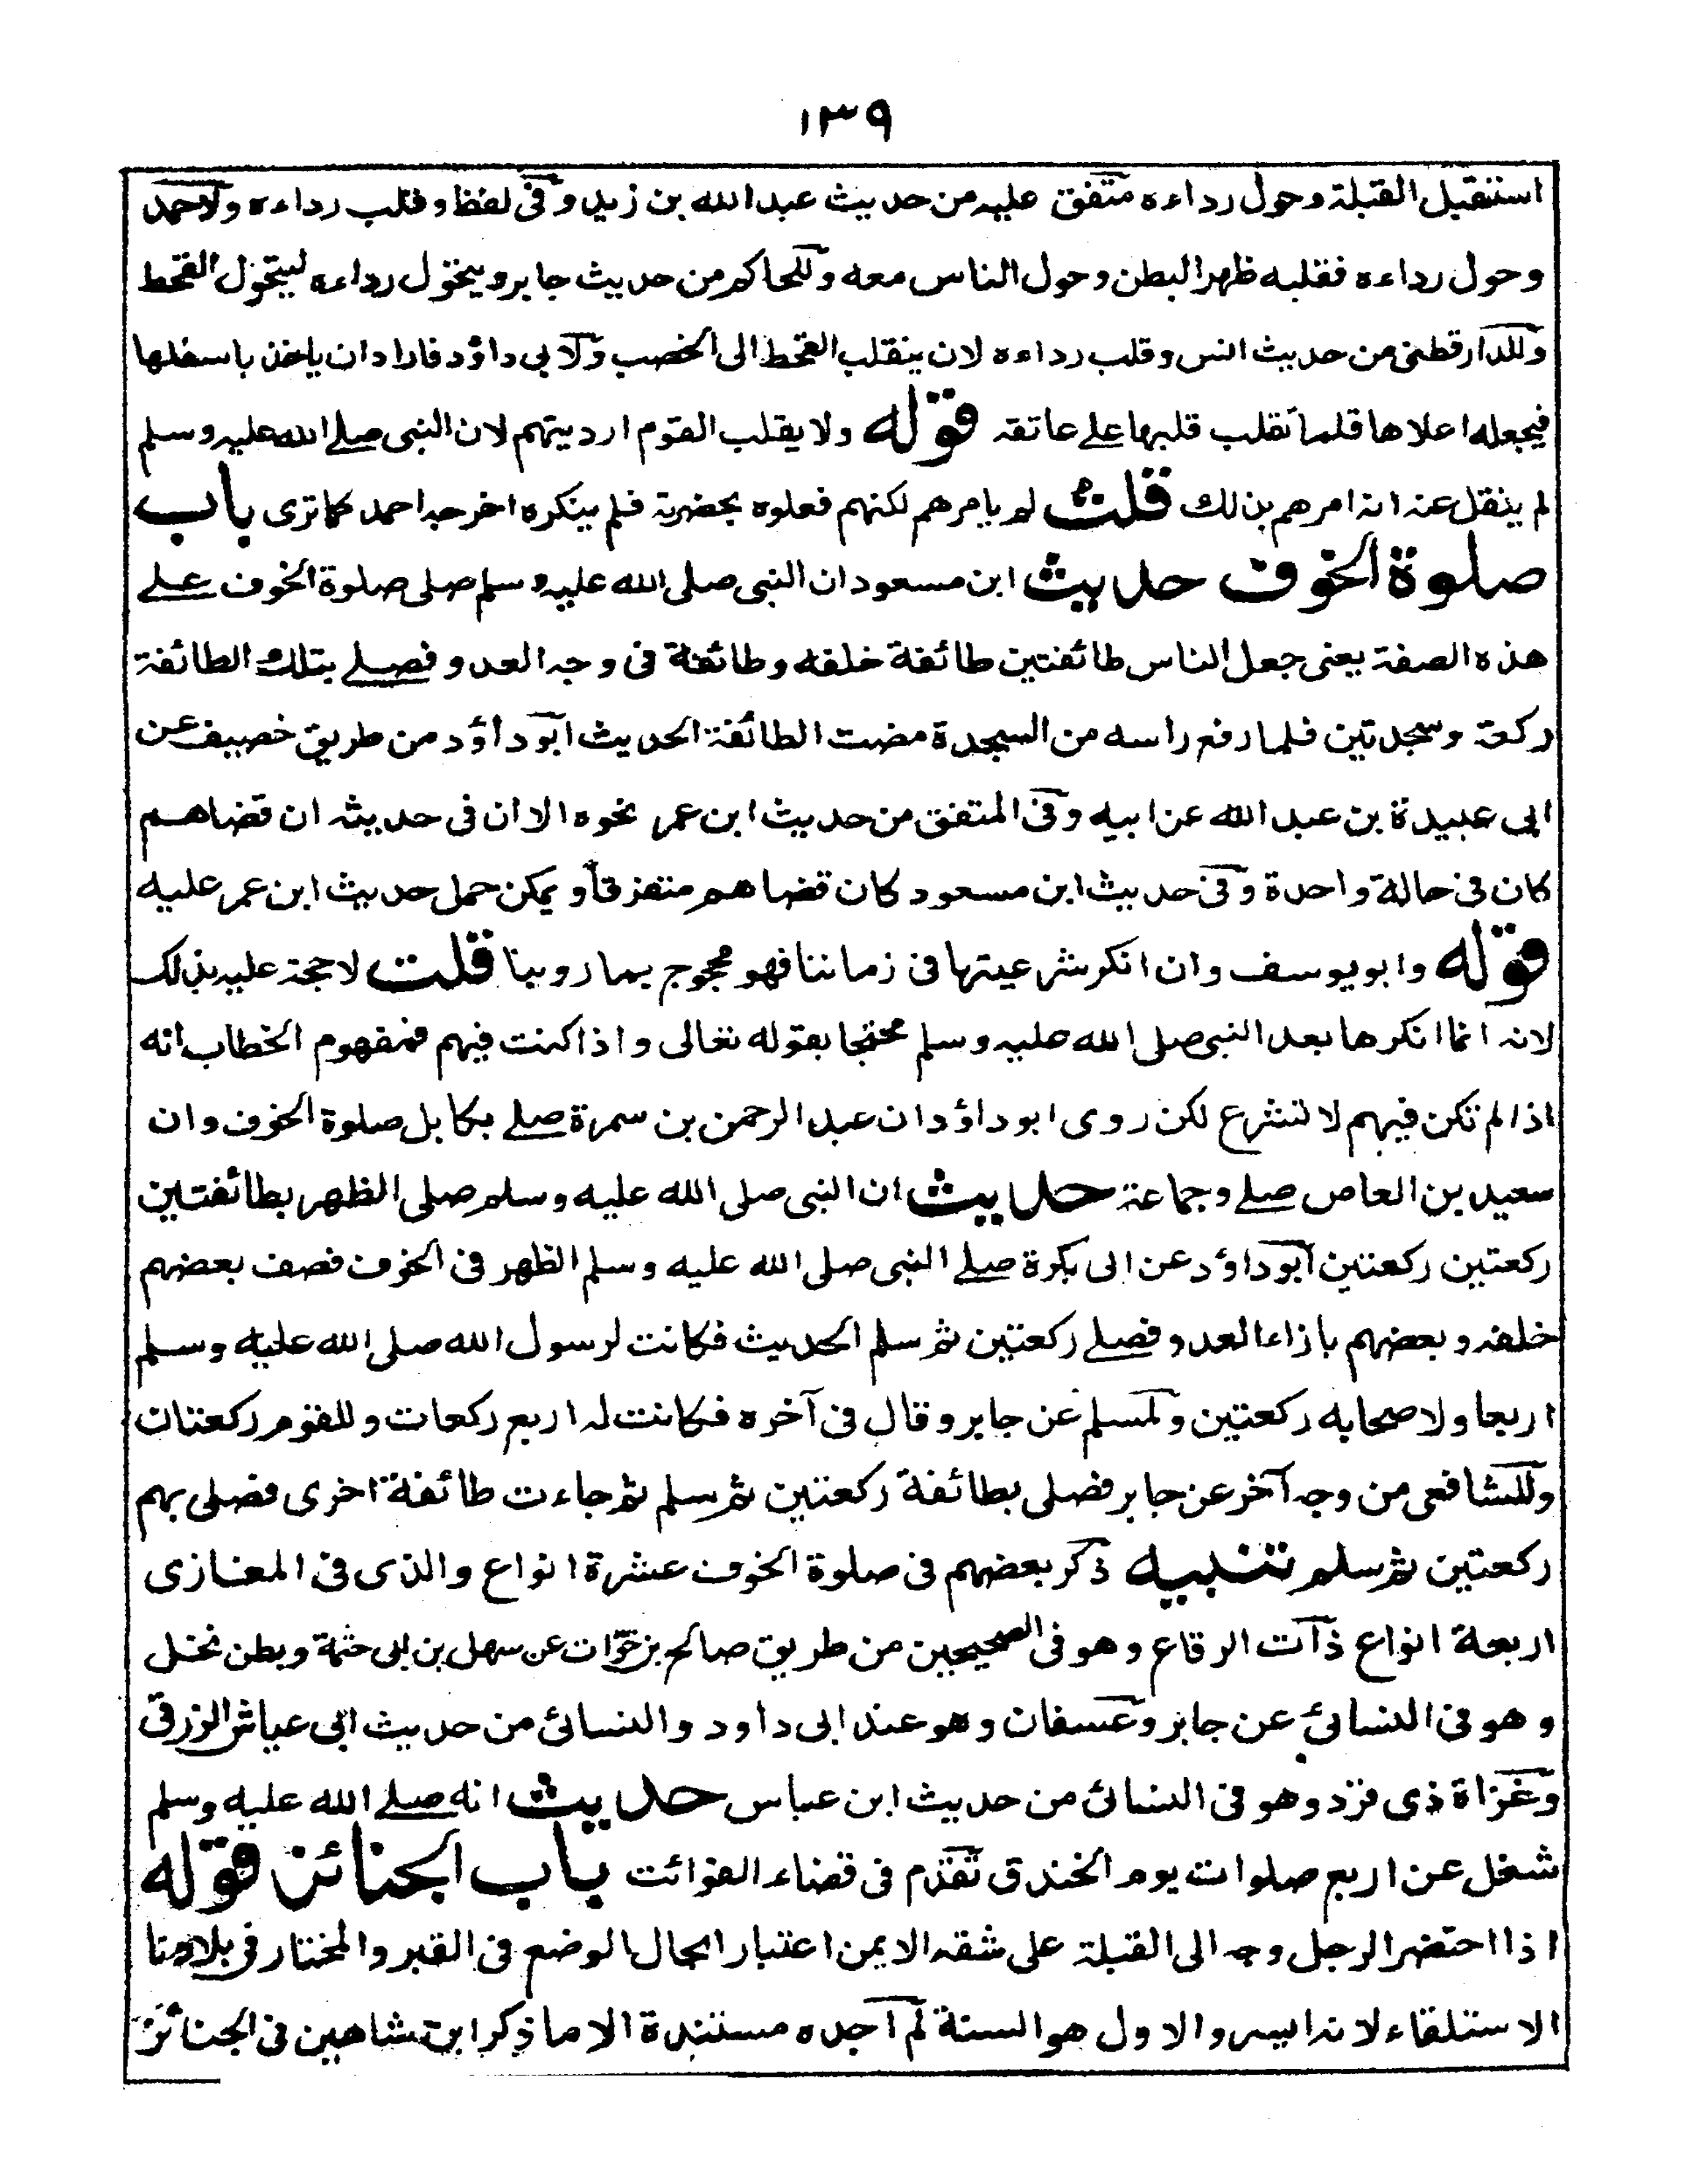 ١٣٩
استقبل القبلة وحول رداءه متفق عليه من حديث عبد الله بن زيد وفى لفظ وقلب رداءه ولاحمد
وحول رداءه فقلبه ظهر البطن وحول الناس معه وللحاكم من حديث جابر ويحول رداءه ليتحول القحط
وللدارقطنى من حديث انس وقلب رداءه لان ينقلب القحط الى الخصب ولابى داؤد فاراد ان ياخذ باسفلها
فيجعله اعلاها فلما ثقلب قلبها على عاتقه قوله ولا يقلب القوم ارديتهم لان النبى صلے الله عليه وسلم
لم ينقل عنه انه امرهم بذلك قلت لم يامرهم لكنهم فعلوه بحضرته فلم ينكره اخرجه احمد كما ترى باب
صلوة الخوف حديث ابن مسعود ان النبى صلى الله عليه وسلم صلى صلوة الخوف علے
هذه الصفة يعنى جعل الناس طائفتين طائفة خلفه وطائفة فى وجه العدو فصلے بتلك الطائفة
ركعة وسجدتين فلما رفع راسه من السجدة مضت الطائفة الحديث ابو داؤد من طريق خصيف عن
ابى عبيدة بن عبد الله عن ابيه وفى المتفق من حديث ابن عمر نحوه الا ان فى حديثه ان قضاهم
كان فى حالة واحدة وفى حديث ابن مسعود كان قضاهم متفرقا ويمكن حمل حديث ابن عمر عليه
قوله وابو يوسف وان انكر شرعيتها فى زماننا فهو محجوج بما روينا قلت لا حجة عليه بذلك
لانه انما انكرها بعد النبى صلى الله عليه وسلم محتجا بقوله تعالى واذا كنت فيهم فمفهوم الخطاب انه
اذا لم تكن فيهم لا تشرع لكن روى ابو داؤد ان عبد الرحمن بن سمرة صلے بكابل صلوة الخوف وان
سعيد بن العاص صلے وجماعة حديث ان النبى صلى الله عليه وسلم صلى الظهر بطائفتين
ركعتين ركعتين ابو داؤد عن ابى بكرة صلے النبى صلى الله عليه وسلم الظهر فى الخوف فصف بعضهم
خلفه وبعضهم بازاء العدو فصلے ركعتين ثم سلم الحديث فكانت لرسول الله صلى الله عليه وسلم
اربعا ولاصحابه ركعتين ولمسلم عن جابر وقال فى آخره فكانت له اربع ركعات وللقوم ركعتان
وللشافعى من وجه آخر عن جابر فصلى بطائفة ركعتين ثم سلم ثم جاءت طائفة اخرى فصلى بهم
ركعتين ثم سلم تنبيه ذكر بعضهم فى صلوة الخوف عشرة انواع والذى فى المغازى
اربعة انواع ذات الرقاع وهو فى الصحيحين من طريق صالح بن خوّات عن سهل بن ابى حثمة وبطن نخل
وهو فى النسائى عن جابر وعسفان وهو عند ابى داود والنسائى من حديث ابى عياش الزرقى
وغزاة ذى قرد وهو فى النسائى من حديث ابن عباس حديث انه صلے الله عليه وسلم
شغل عن اربع صلوات يوم الخندق تقدم فى قضاء الفوائت باب الجنائز قوله
اذا احتضر الرجل وجه الى القبلة على شقه الايمن اعتبار الحال الوضع فى القبر والمختار فى بلادنا
الاستلقاء لانه ايسر والاول هو السنة لم اجده مستندة الا ما ذكر ابن شاهين فى الجنائز